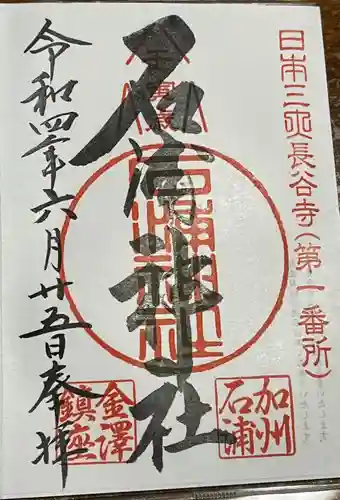 日本三大長谷寺(第一番所)
石浦神社
石浦神社
令和四年六月廿五日奉拝
加州
石浦
金澤
鎮座